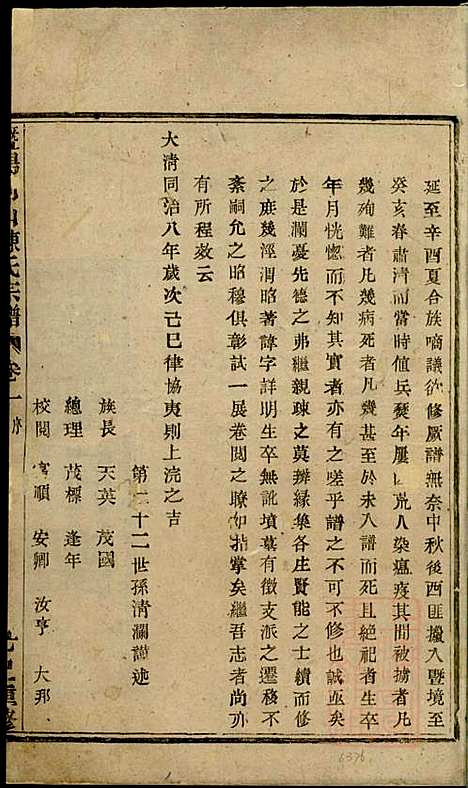 延至辛酉夏合族嘀議欲修厥譜無奈中秋後西匪擾入暨境至
癸亥春肅清而當時値兵燹年屢凶荒人染瘟疫其間被擄者凡
幾殉難者凡幾病死者凡幾甚至於未入譜而死且絕祀者生卒
年月恍惚而不知其實者亦有之嗟乎譜之不可不修也誠亟矣
於是瀾憂先德之弗繼親疎之莫辨緣集各庄賢能之士續而修
之庶幾涇渭昭著諱字詳明生卒無訛墳墓有徵支派之遷移不
紊嗣允之昭穆俱彰試一展卷閱之瞭如指掌矣繼吾志者尚亦
有所程效云
大清同治八年歲次己巳律協夷則上浣之吉
第二十二世孫清瀾謹述
族長 天英 茂國
總理 茂標 逢年
校閱 富順 安卿 汝亨 大邦
暨陽 陳氏宗譜 卷一 序
重修
6376